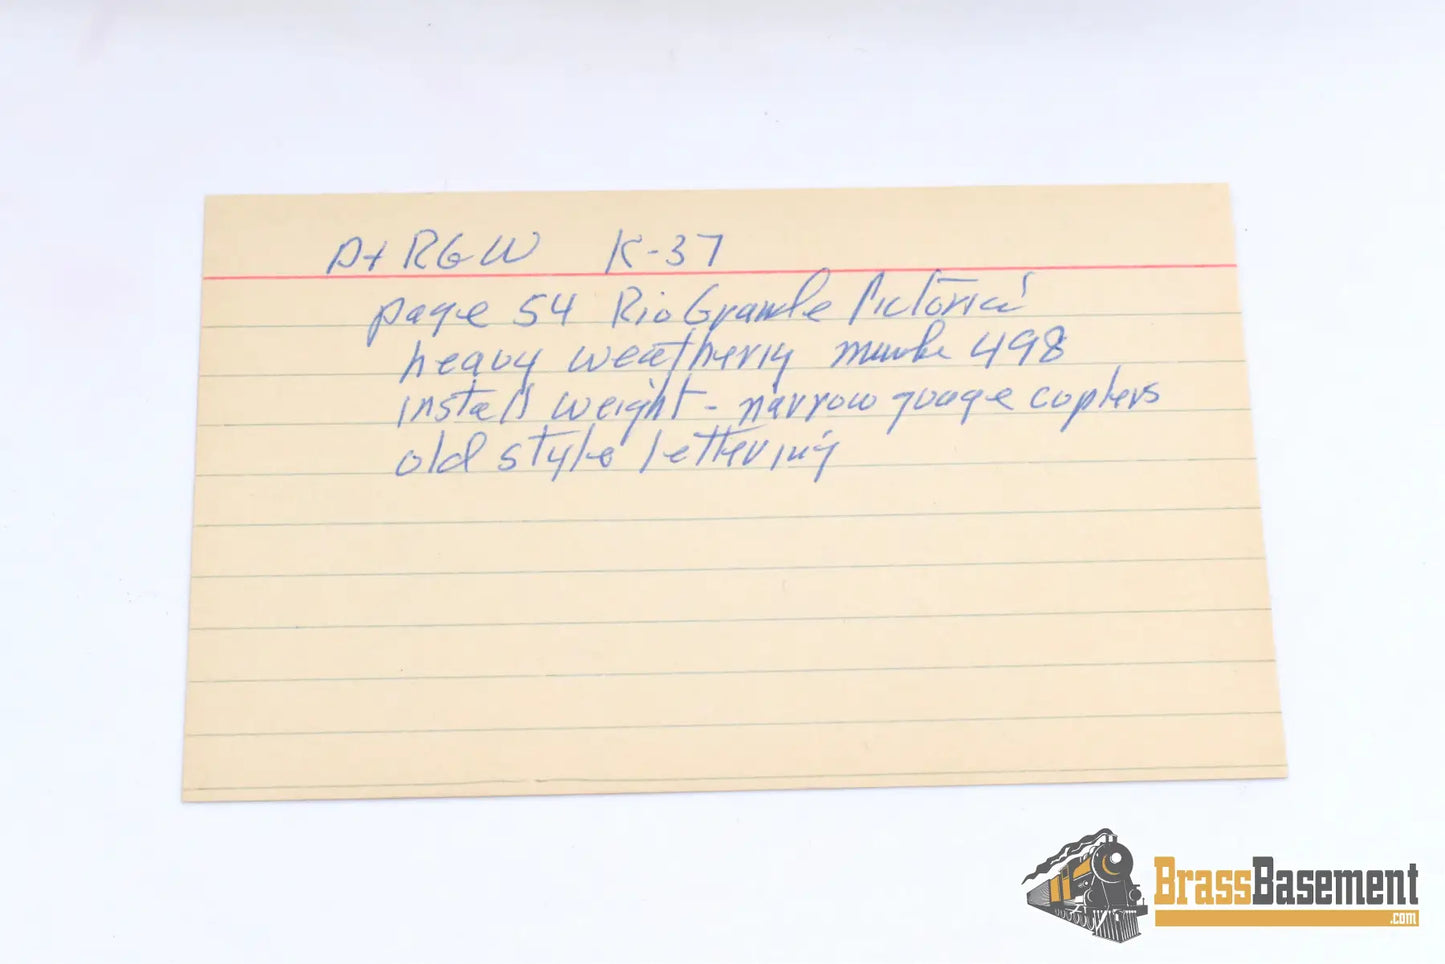 D+RGW K-37
page 54 Rio Grande Pictorial
heavy weathering number 498
install weight - narrow guage coplers
old style lettering
BrassBasement
.com